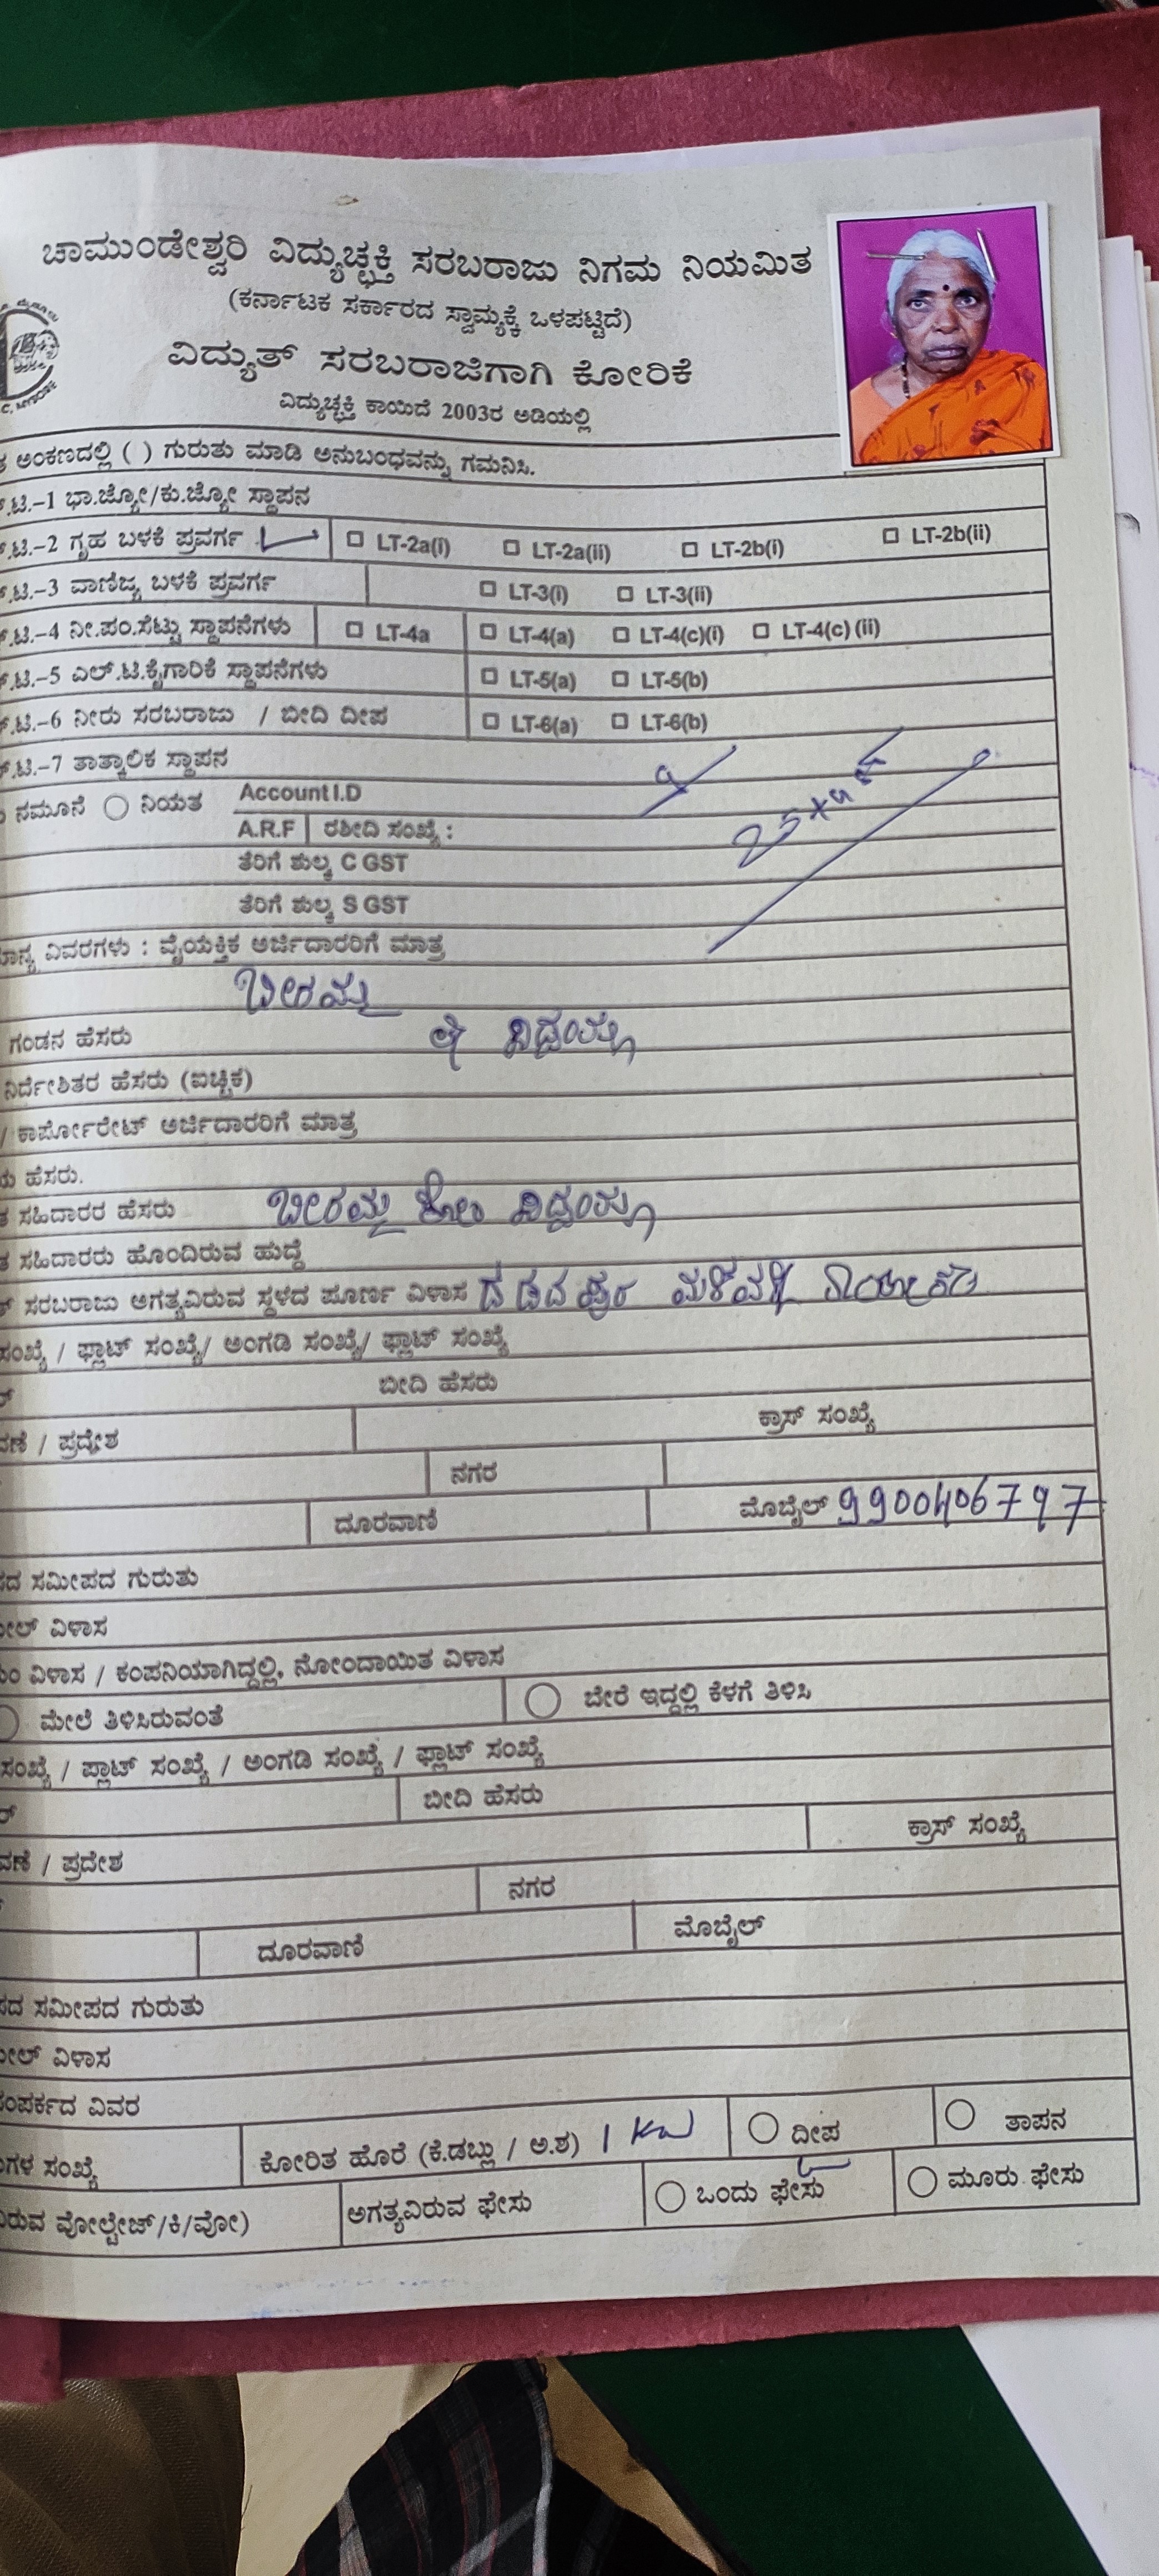 ಚಾಮುಂಡೇಶ್ವರಿ ವಿದ್ಯುಚ್ಛಕ್ತಿ ಸರಬರಾಜು ನಿಗಮ ನಿಯಮಿತ
(ಕರ್ನಾಟಕ ಸರ್ಕಾರದ ಸ್ವಾಮ್ಯಕ್ಕೆ ಒಳಪಟ್ಟಿದೆ)
ವಿದ್ಯುತ್ ಸರಬರಾಜಿಗಾಗಿ ಕೋರಿಕೆ
ವಿದ್ಯುಚ್ಛಕ್ತಿ ಕಾಯಿದೆ 2003ರ ಅಡಿಯಲ್ಲಿ
ಅಂಕಣದಲ್ಲಿ ( ) ಗುರುತು ಮಾಡಿ ಅನುಬಂಧವನ್ನು ಗಮನಿಸಿ.
.ಟಿ.–1 ಭಾ.ಜ್ಯೋ/ಕು.ಜ್ಯೋ ಸ್ಥಾಪನ
.ಟಿ.–2 ಗೃಹ ಬಳಕೆ ಪ್ರವರ್ಗ LT-2a(i) LT-2a(ii) LT-2b(i) LT-2b(ii)
.ಟಿ.–3 ವಾಣಿಜ್ಯ ಬಳಕೆ ಪ್ರವರ್ಗ LT-3(i) LT-3(ii)
.ಟಿ.–4 ನೀ.ಪಂ.ಸೆಟ್ಟು ಸ್ಥಾಪನೆಗಳು LT-4a LT-4(a) LT-4(c)(i) LT-4(c) (ii)
.ಟಿ.–5 ಎಲ್.ಟಿ.ಕೈಗಾರಿಕೆ ಸ್ಥಾಪನೆಗಳು LT-5(a) LT-5(b)
.ಟಿ.–6 ನೀರು ಸರಬರಾಜು / ಬೀದಿ ದೀಪ LT-6(a) LT-6(b)
.ಟಿ.–7 ತಾತ್ಕಾಲಿಕ ಸ್ಥಾಪನ
ನಮೂನೆ ನಿಯತ Account I.D
A.R.F ರಶೀದಿ ಸಂಖ್ಯೆ :
ತೆರಿಗೆ ಶುಲ್ಕ C GST
ತೆರಿಗೆ ಶುಲ್ಕ S GST
ವಿವರಗಳು : ವೈಯಕ್ತಿಕ ಅರ್ಜಿದಾರರಿಗೆ ಮಾತ್ರ
ಬೀರಮ್ಮ
ಗಂಡನ ಹೆಸರು
ನಿರ್ದೇಶಿತರ ಹೆಸರು (ಐಚ್ಚಿಕ)
/ ಕಾರ್ಪೋರೇಟ್ ಅರ್ಜಿದಾರರಿಗೆ ಮಾತ್ರ
ಹೆಸರು.
ಸಹಿದಾರರ ಹೆಸರು ಬೀರಮ್ಮ ಕೋಂ
ಸಹಿದಾರರು ಹೊಂದಿರುವ ಹುದ್ದೆ
ಸರಬರಾಜು ಅಗತ್ಯವಿರುವ ಸ್ಥಳದ ಪೂರ್ಣ ವಿಳಾಸ
ಸಂಖ್ಯೆ / ಫ್ಲಾಟ್ ಸಂಖ್ಯೆ/ ಅಂಗಡಿ ಸಂಖ್ಯೆ/ ಫ್ಲಾಟ್ ಸಂಖ್ಯೆ
ಬೀದಿ ಹೆಸರು
/ ಪ್ರದೇಶ ಕ್ರಾಸ್ ಸಂಖ್ಯೆ
ನಗರ
ದೂರವಾಣಿ ಮೊಬೈಲ್ 9900406797
ಸಮೀಪದ ಗುರುತು
ವಿಳಾಸ
ವಿಳಾಸ / ಕಂಪನಿಯಾಗಿದ್ದಲ್ಲಿ, ನೋಂದಾಯಿತ ವಿಳಾಸ
ಮೇಲೆ ತಿಳಿಸಿರುವಂತೆ ಬೇರೆ ಇದ್ದಲ್ಲಿ ಕೆಳಗೆ ತಿಳಿಸಿ
ಸಂಖ್ಯೆ / ಪ್ಲಾಟ್ ಸಂಖ್ಯೆ / ಅಂಗಡಿ ಸಂಖ್ಯೆ / ಫ್ಲಾಟ್ ಸಂಖ್ಯೆ
ಬೀದಿ ಹೆಸರು
/ ಪ್ರದೇಶ ಕ್ರಾಸ್ ಸಂಖ್ಯೆ
ನಗರ
ದೂರವಾಣಿ ಮೊಬೈಲ್
ಸಮೀಪದ ಗುರುತು
ವಿಳಾಸ
ಸಂಪರ್ಕದ ವಿವರ
ಸಂಖ್ಯೆ ಕೋರಿತ ಹೊರೆ (ಕಿ.ಡಬ್ಲು / ಅ.ಶ) 1 KW ದೀಪ ತಾಪನ
ವೋಲ್ಟೇಜ್/ಕಿ/ವೋ) ಅಗತ್ಯವಿರುವ ಫೇಸು ಒಂದು ಫೇಸು ಮೂರು ಫೇಸು